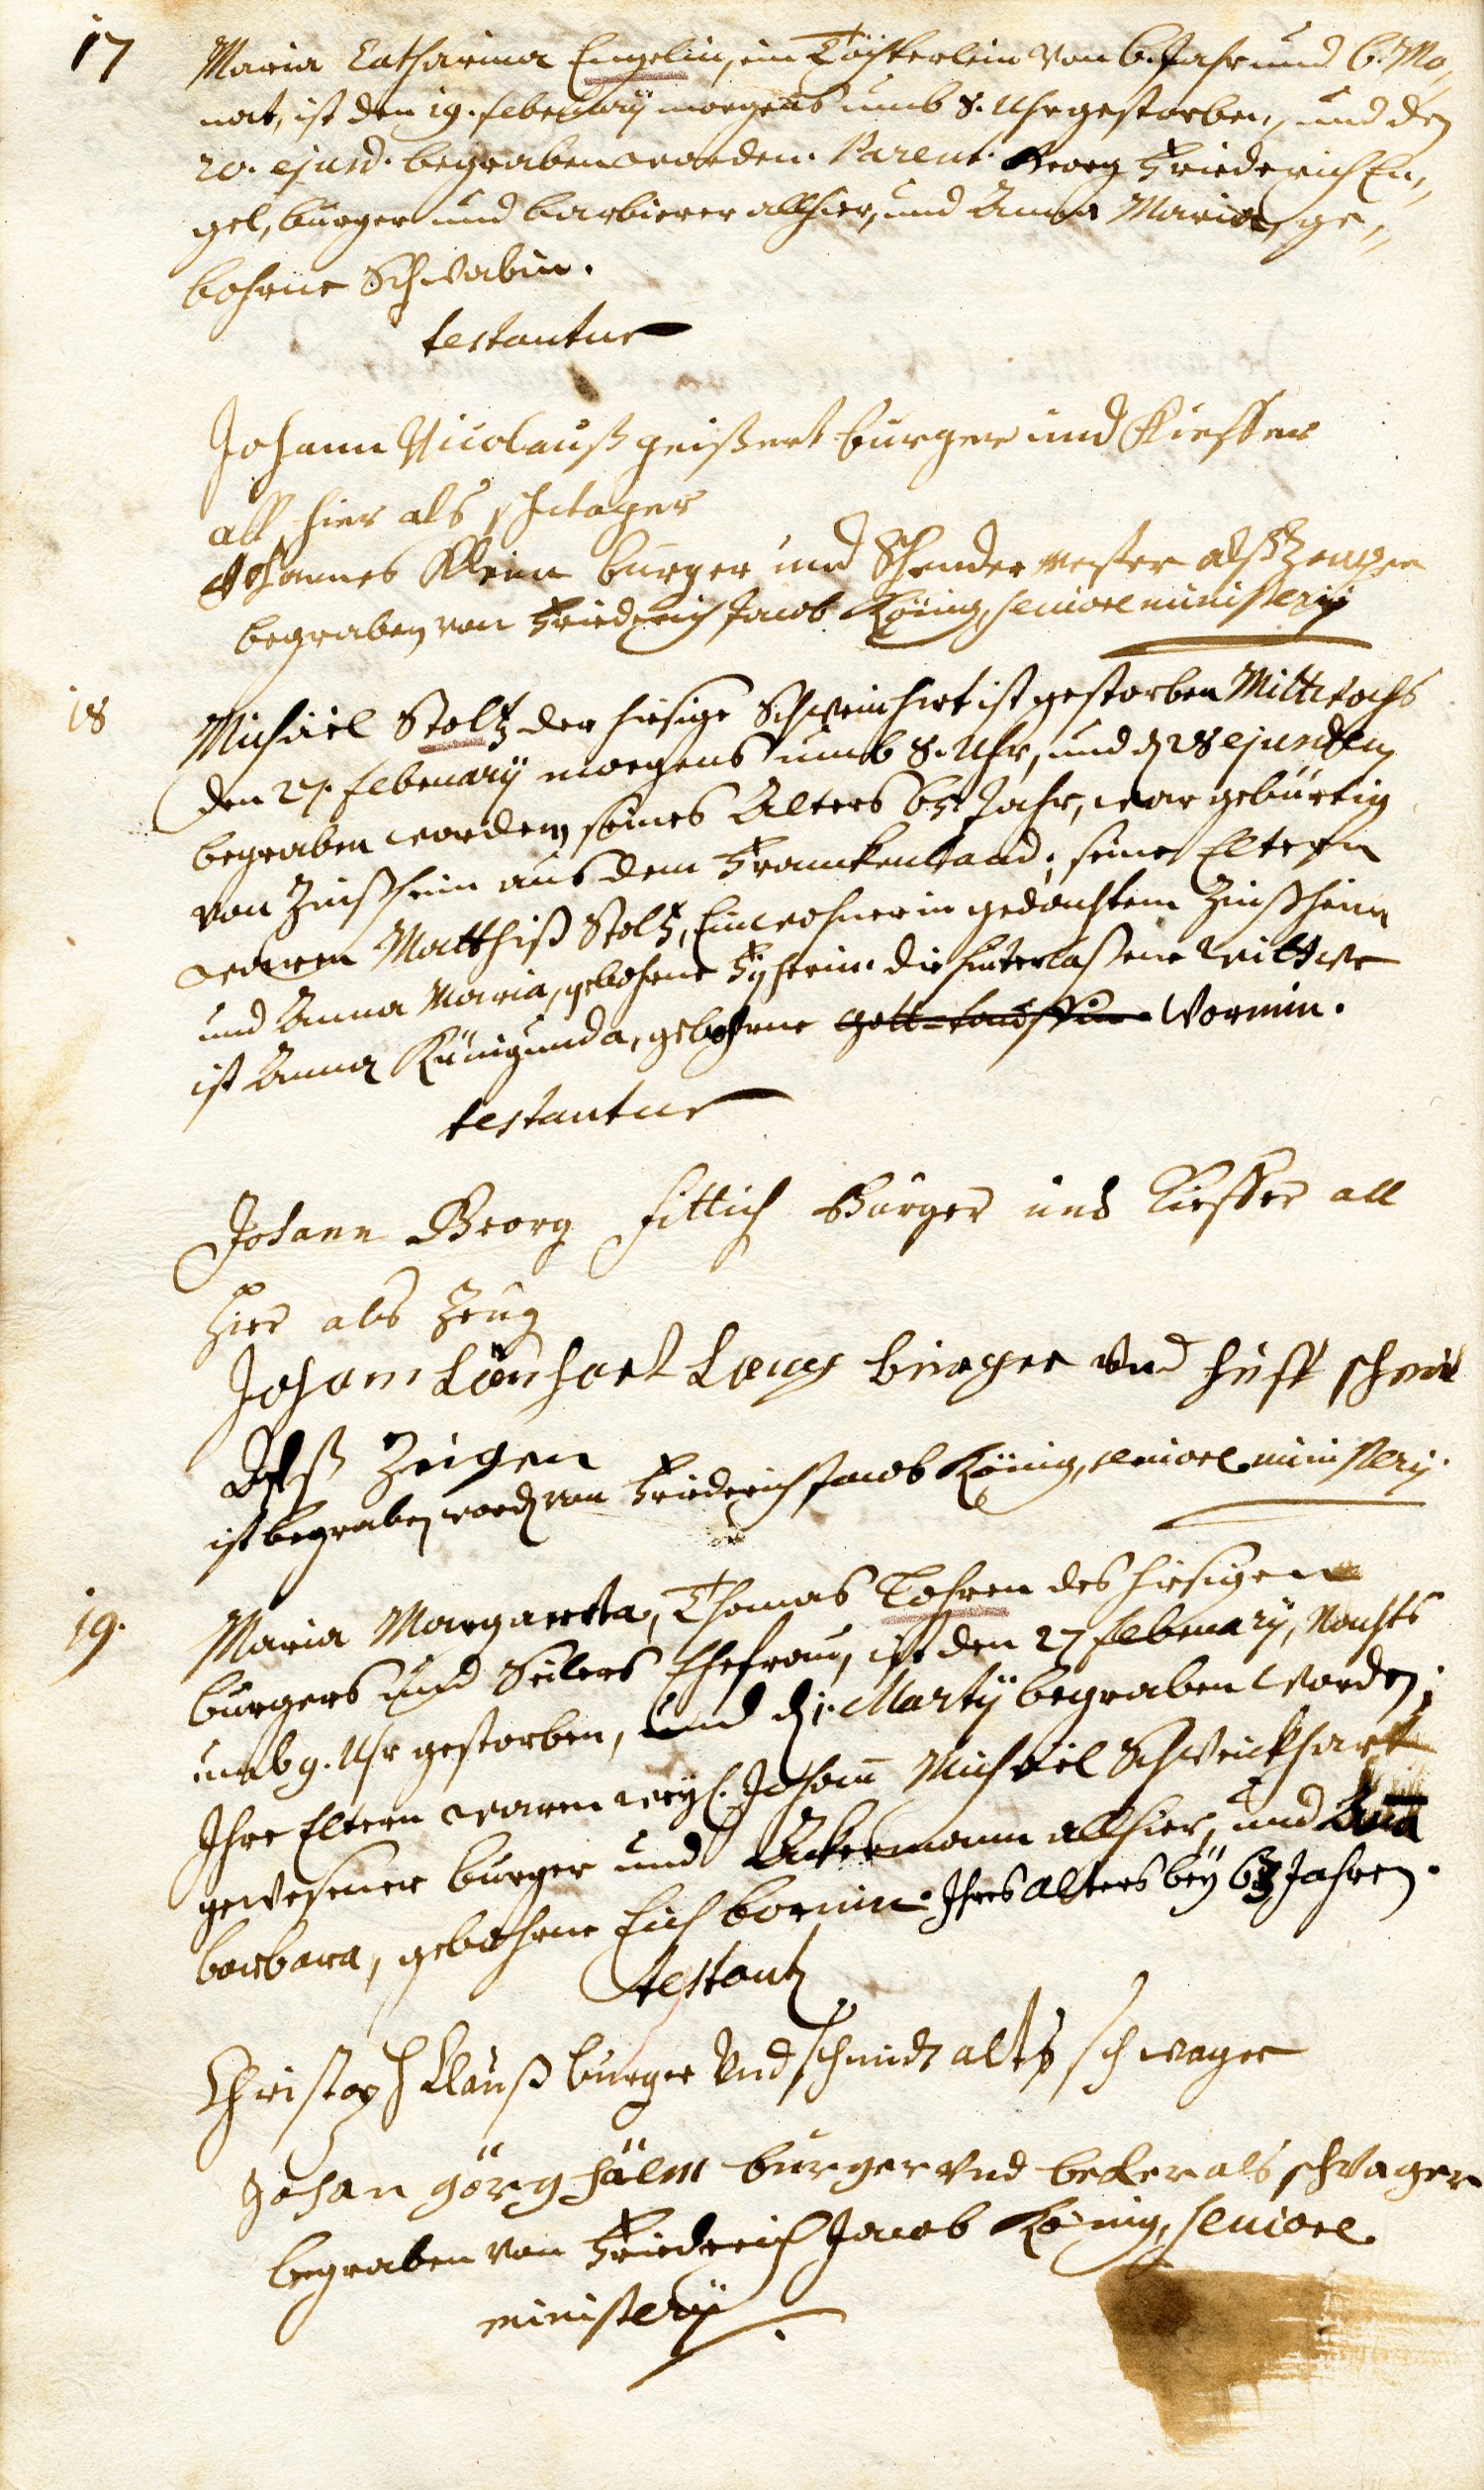 17 Maria Catharina Engelin, ein Töchterlein von 6. Jahr und 6. Mo,,
nat, ist den 19. february morgens umb 8. Uhr gestorben, und den
20. ejusd. begraben worden. Parent. Georg Friederich En,,
gel, burger und barbierer allhier, und Anna Maria, ge,,
bohrne Schwabin.
testantur
Johann Nicolauß geißert burger und Kieffer
all hier als
Johannes Klein burger und alß Zeugen
begraben von Friederich Jacob König, seniore ministerij
18 Michäel Stoltz der hiesige Schweinhirt ist gestorben Mittwochs
den 27. february morgens umb 8. Uhr, und d 28 ejusdem
begraben worden, seines Alters 65. Jahr, war gebürtig
von Zinßheim aus dem Franckenland, seine Eltern
waren Matthiß Stoltz, Einwohner in gedachtem Zinßheim
und Anna Maria, gebohrne die hinterlaßene Wittwe
ist Anna Kunigunda, gebohrne Wormin.
testantur
Johann Georg Fittich Burger und Kieffer all
hier als Zeug
Johann Lönhart Lang burger und huff schmit
Alß Zeigen
ist begraben word von Friederich Jacob König, seniore ministerij.
19. Maria Margaretha, Thomas Lohren des hiesigen
burgers und Seilers Ehefrau, ist den 27 february, Nachts
umb 9. Uhr gestorben, und d 1. Martij begraben worden;
Ihre Eltern waren weyl. Johann Michäel Schweickhart
gewesener burger und Ackermann allhier, und Anna
barbara, gebohrne Eichbornin. Ihres alters bey 63 Jahren.
testant
Christoph Clauß burger Und schmidt alts schwager
Johan görg hälm burger und becker als schwager
begraben von Friederich Jacob König, seniore
ministerij